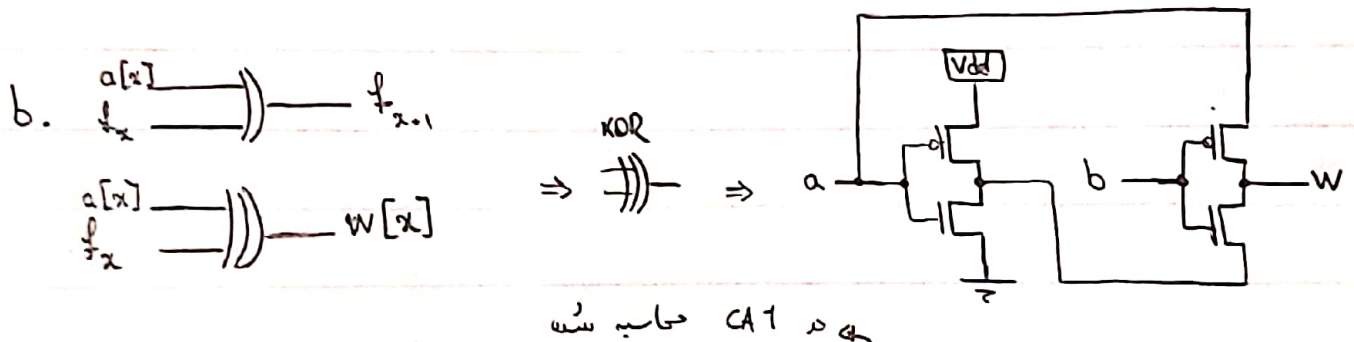 b. a[x]
f_x
f_{x+1}
a[x]
f_x
W[x]
⇒ XOR ⇒
Vdd
a
b
W
CA1 محاسبه شد